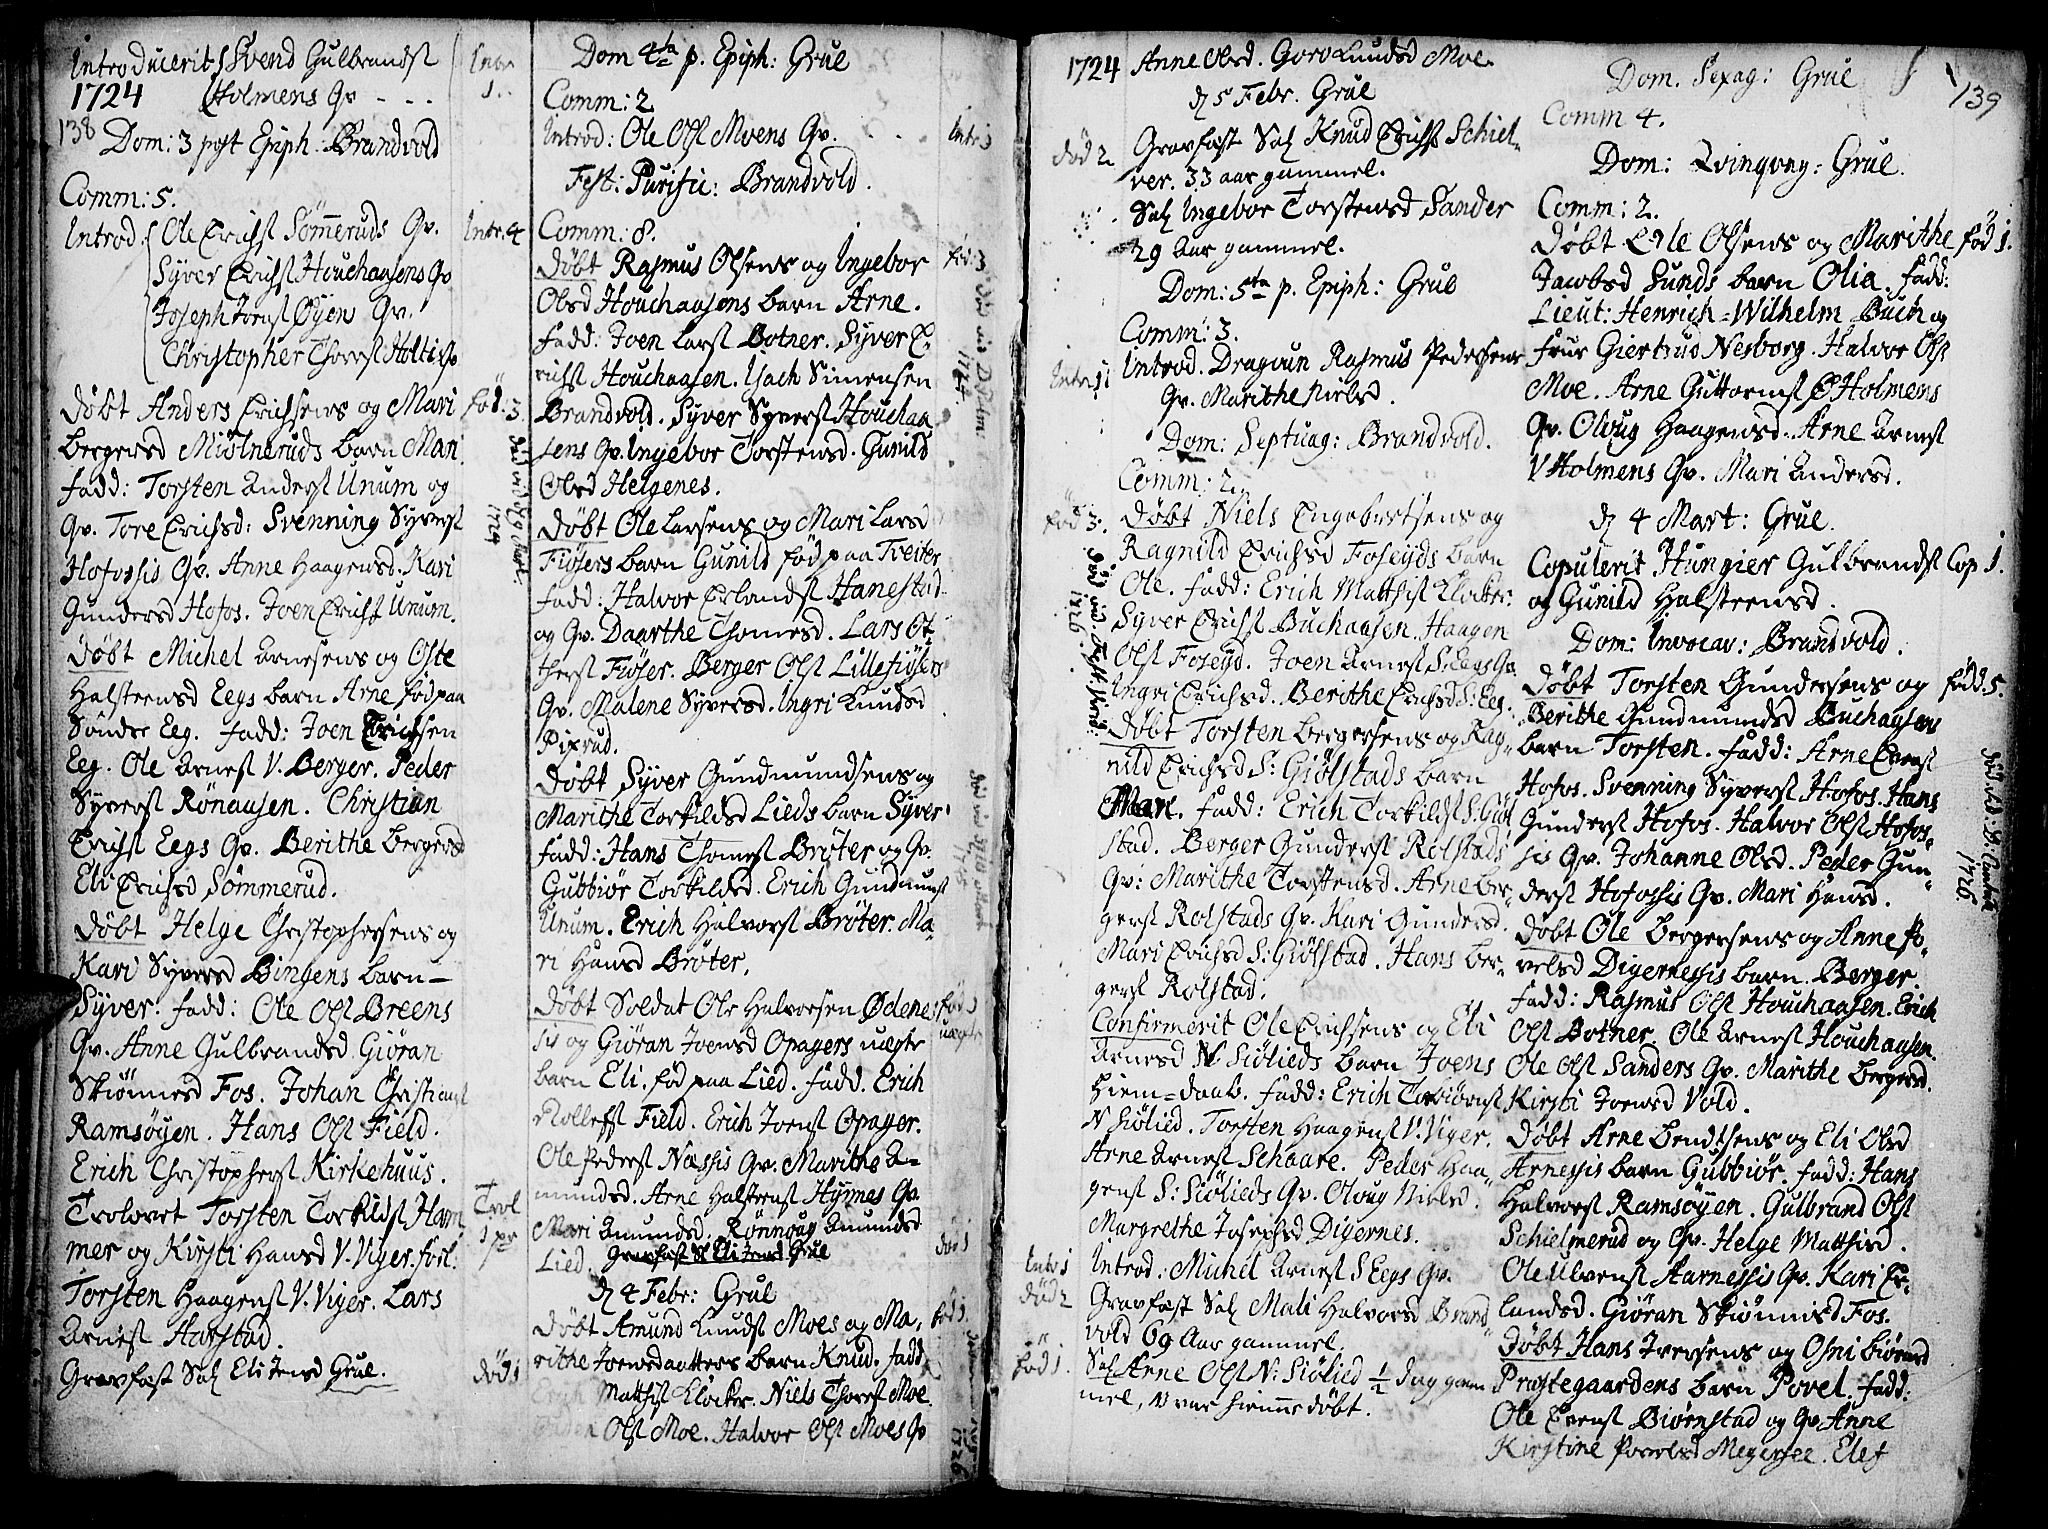 Introducerit Svend Gulbrandsl
1724 Holmens Qv - - -
Intr
1..
138
Dom: 3 post Epiph: Brandvold
Comm: 5.
Introd. Ole Erichsl Sömeruds Qv.
Intr. 4
Syver Erichsl Houchaasens Qv
Joseph Joensl Øyens Qv.
Christopher Thoresl Holtis Qv
Döbt Anders Erichsens og Mari
föd: 3
Bergersd Miölneruds barn Mari.
fadd: Torsten Andersl Unum og
Qv. Tore Erichsd: Svenning Syversl
1724
Hofossis Qv. Anne Haagensd. Kari
Gundersd Hofos. Joen Erichsl Unum.
Döbt Michel Arnesens og Oste
Halsteensd Eegs barn Arne föd paa
Söndre Eeg. fadd: Joen Erichsen
Eeg. Ole Arnesl V. Berger. Peder
Syversl Rönaasen. Christian
Erichsl Eegs Qv. Berithe Bergersd
Eli Erichsd Sömmerud.
Döbt Helge Christophersens og
Kari Syversd Bingens barn
Syver. fadd: Ole Olsl Breens
Qv. Anne Gulbrandsd. Giöran
Skiönnesd Fos. Johan Christiansl
Ramsöyen. Hans Olsl Field.
Erich Christophersl Kirkehuus.
Trolovet Torsten Torkildsl Ham
Trol
1 pr
mer og Kirsti Hansd V. Viger. forl:
Torsten Haagensl V. Viger. Lars
Arnesl Harstad.
Gravfæst Sal Eli Jensd Grue.
död 1
Dom 4ta p. Epiph: Grue
Comm: 2
Introd: Ole Olsl Moens Qv. . .
Intr: 1
Fest: Purific: Brandvold.
Comm: 8.
Döbt Rasmus Olsens og Ingebor
föd: 3
Olsd Houchaasens barn Arne.
fadd: Joen Larsl Botner. Syver E-
1724
richsl Houchaasen. Isach Simensen
Brandvold. Syver Syversl Houchaa
sens Qv. Ingebor Torstensd. Gunild
Olsd Helgenes.
Döbt Ole Larsens og Mari Larsd
Fiösers barn Gunild föd paa Treiter
fadd: Halvor Erlandsl Hanestad
og Qv. Daarthe Thomesd. Lars Ot-
thersl Fiöser. Berger Olsl Lillefiösers
Qv. Malene Syversd. Ingri Knudsd
Pixrud.
Döbt Syver Gundmundsens og
Marithe Torkildsd Lieds barn Syver
fadd: Hans Thomesl Bröter og Qv.
Gubbiör Torkildsd. Erich Gundmunsl
Unum. Erich Halvorsl Bröter. Ma-
ri Hansd Bröter.
Döbt Soldat Ole Halvorsen Ødenes-
föd 1
uægte
sis og Giöran Joensd Opagers uægte
barn Eli, föd paa Lied. fadd. Erich
Rolleffsl Field. Erich Joensl Opager.
Ole Pedersl Næssis Qv. Marithe A-
mundsd. Arne Halsteensl Hymes Qv.
Mari Amundsd. Rönnoug Amundsd
Lied. Gravfæst Sl Eli Jensd Grue
död 1
D 4 Febr: Grue
Döbt Amund Knudsl Moes og Ma-
föd 1.
rithe Joensdaatters barn Knud. fadd
Erich Matthisl Klocker. Niels Thoresl Moe.
Olsl Moe. Halvor Olsl Moes Qv
1726
1724
Anne Olsd. Goro Knudsd Moe.
D 5 Febr. Grue
död 2
Gravfæst Sal Knud Erichsl Schiel-
ver. 33 aar gammel.
Sal Ingebor Torstensd Sander
29 Aar gammel.
Dom: 5ta p. Epiph: Grue
Comm: 3.
Intr: 1
Introd. Dragoun Rasmus Pedersens
Qv. Marithe Nielsd.
Dom: Septuag: Brandvold.
Comm: 2.
föd 3:
Döbt Niels Engebretsens og
Ragnild Erichsd Foseyds barn
Ole. fadd: Erich Matthisl Klocker.
1726.
Syver Erichsl Buchaasen. Haagen
Olsl Foseyd. Joen Arnesl S. Eegs Qv.
Ingri Erichsd. Berithe Erichsd S: Eeg.
Döbt Torsten Bergersens og Rag-
nild Erichsd S: Giölstads barn
Mari. fadd: Erich Torkildsl S. Giöl
stad. Berger Gundersl Rolstads
Qv: Marithe Torstensd. Arne Ber-
gersl Rolstads Qv. Kari Gundersd.
Mari Erichsd S: Giölstad. Hans Ber-
gersl Rolstad.
Confirmerit Ole Erichsens og Eli
Arnesd N Siölieds barn Joens
hiem=daab. fadd: Erich Torbiörnsl
N Siölied. Torsten Haagensl V. Viger.
Arne Arnesl Schaare. Peder Haa-
gensl S: Siölieds Qv. Oloug Nielsd.
Margrethe Josephsd Digernes.
Intr 1
Introd: Michel Arnesl S Eegs Qv.
död 2
Gravfæst Sal Mali Halvorsd Brand-
vold 69 Aar gammel.
föd 1.
Sal Arne Olsl N: Siölied ½ dag gam
mel, som var hiemme döbt.
Dom. Sexag: Grue
139
Comm 4.
Dom: Qvinqvag: Grue.
Comm: 2.
Döbt Erle Olsens og Marithe
föd 1.
Jacobsd Sunds barn Olia. fadd:
Lieut: Henrich=Wilhelm Buch og
frue Giertrud Nesborg. Halvor Olsl
Moe. Arne Guttormsl Ø Holmens
Qv. Oloug Haagensd. Arne Arnesl
V Holmens Qv. Mari Andersd.
D 4 Mart: Grue.
Copulerit Hungier Gulbrandsl
Cop 1.
og Gunild Halsteensd.
Dom: Invocav: Brandvold.
Döbt Torsten Gundersens og
född. 5.
Berithe Gundmundsd Buchaasens
barn Torsten. fadd: Arne Evensl
Hofos. Svenning Syversl Hofos. Hans
Gundersl Hofos. Halvor Olsl Hofos-
sis Qv. Johanne Olsd. Peder Gun-
1726.
dersl Hofossis Qv. Mari Hansd.
Döbt Ole Bergersens og Anne Po-
velsd Digernessis barn Berger.
fadd: Rasmus Olsl Houchaasen. Erich
Olsl Botner. Ole Arnesl Houchaasen.
Ole Olsl Sanders Qv. Marithe Bergersd.
Kirsti Joensd Vold.
Döbt Arne Bendtsens og Eli Olsd
Arnessis barn Gubbiör. fadd: Hans
Halvorsl Ramsöyen. Gulbrand Olsl
Schielmerud og Qv. Helge Matthisd.
Ole Ulvensl Aarnessis Qv. Kari Er-
landsd. Giöran Skiönnisd Fos.
Döbt Hans Iversens og Osni Biörnsd
Præstegaardens barn Povel. fadd:
Ole Evensl Biörnstad og Qv Anne
Kirstine Povelsd Meyersee. Elef